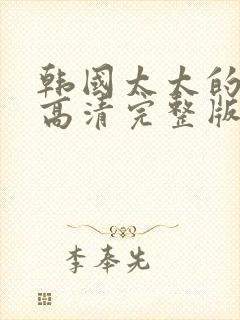 韩國太大的
高清完整版
李奉先